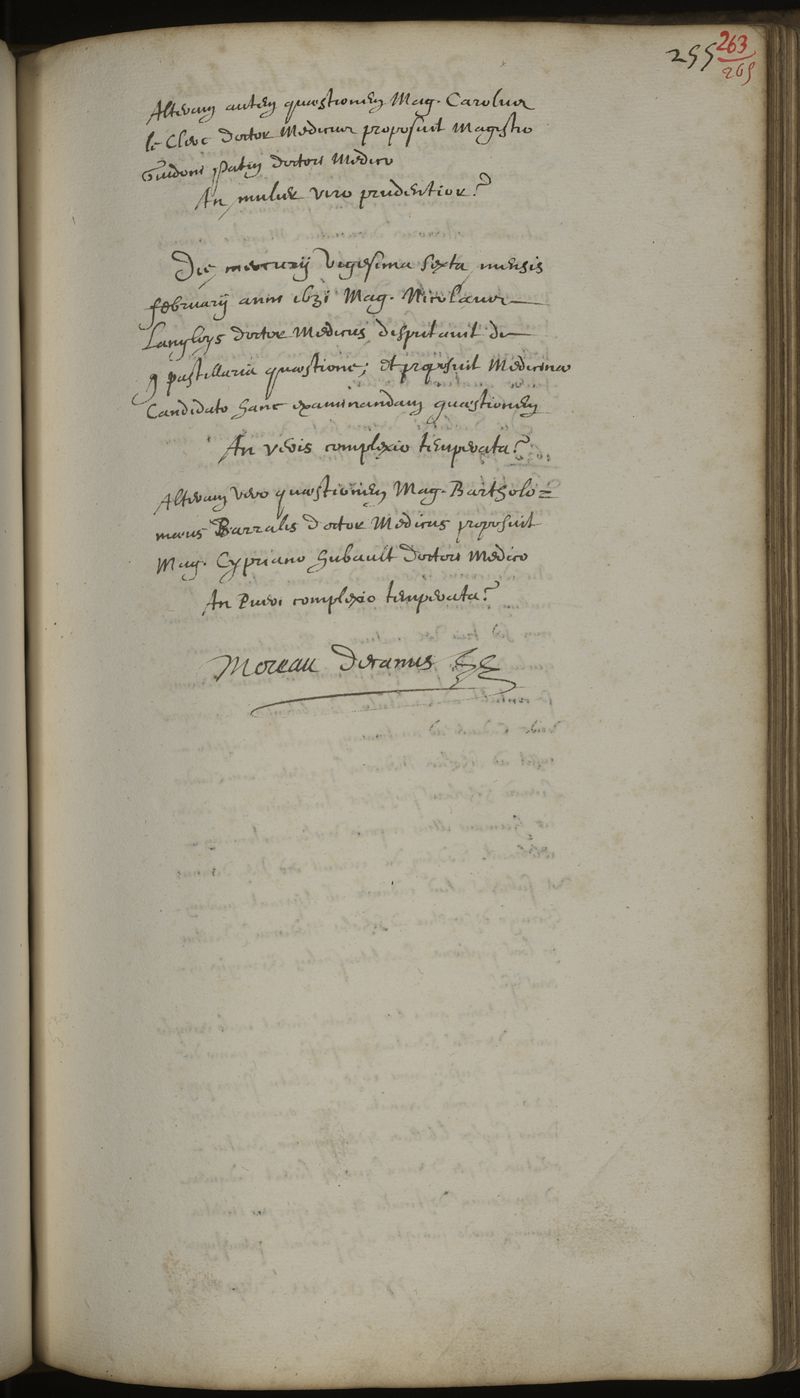 255 263
265
Alteram autem quæstionem Mag. Carolus
le Clerc doctor Medicus proposuit Magistro
Guidoni Patin doctori Medico
An mulier viro prudentior?
Die mercurij vigesima sexta mensis
februarij anni 1631 Mag. Nicolaus
Langloys doctor Medicus disputavit de
pastillaria quæstione; et proposuit Medicinæ
Candidato hanc examinandam quæstionem
An veris complexio temperata?
Alteram vero quæstionem Mag. Bartholo=
mæus Barralis doctor Medicus proposuit
Mag. Cypriano hubault doctori Medico
An Pueri complexio temperata?
Moreau decanus